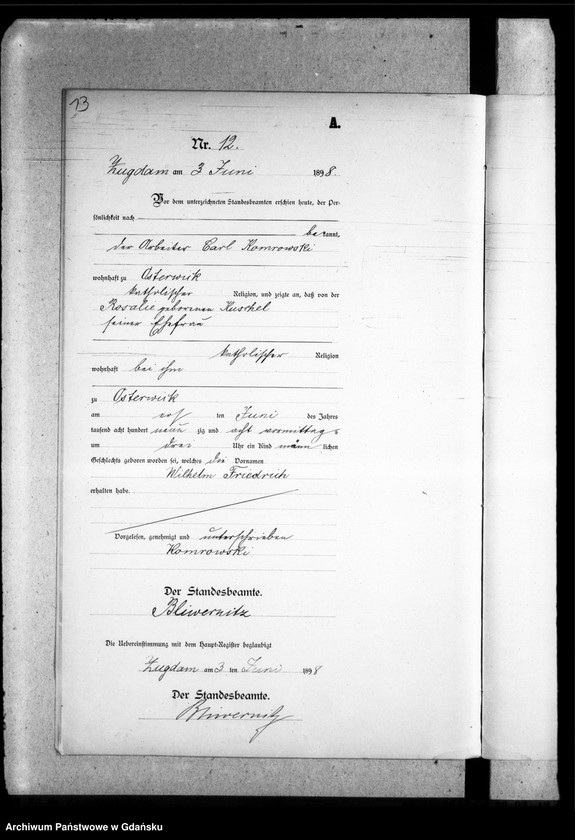 13
A.
Nr. 12.
Zugdam am 3 Juni 1898.
Vor dem unterzeichneten Standesbeamten erschien heute, der Per-
sönlichkeit nach
bekannt,
der Arbeiter Carl Komrowski
wohnhaft zu Osterwick
katholischer Religion, und zeigte an, daß von der
Rosalie geborenen Kuschel
seiner Ehefrau
katholischer Religion
wohnhaft bei ihm
zu Osterwick
am ersten Juni des Jahres
tausend acht hundert neunzig und acht vormittags
um drei Uhr ein Kind männlichen
Geschlechts geboren worden sei, welches die Vornamen
Wilhelm Friedrich
erhalten habe.
Vorgelesen, genehmigt und unterschrieben
Komrowski
Der Standesbeamte.
Bliwernitz
Die Uebereinstimmung mit dem Haupt-Register beglaubigt
Zugdam am 3 ten Juni 1898
Der Standesbeamte.
Bliwernitz
Archiwum Państwowe w Gdańsku